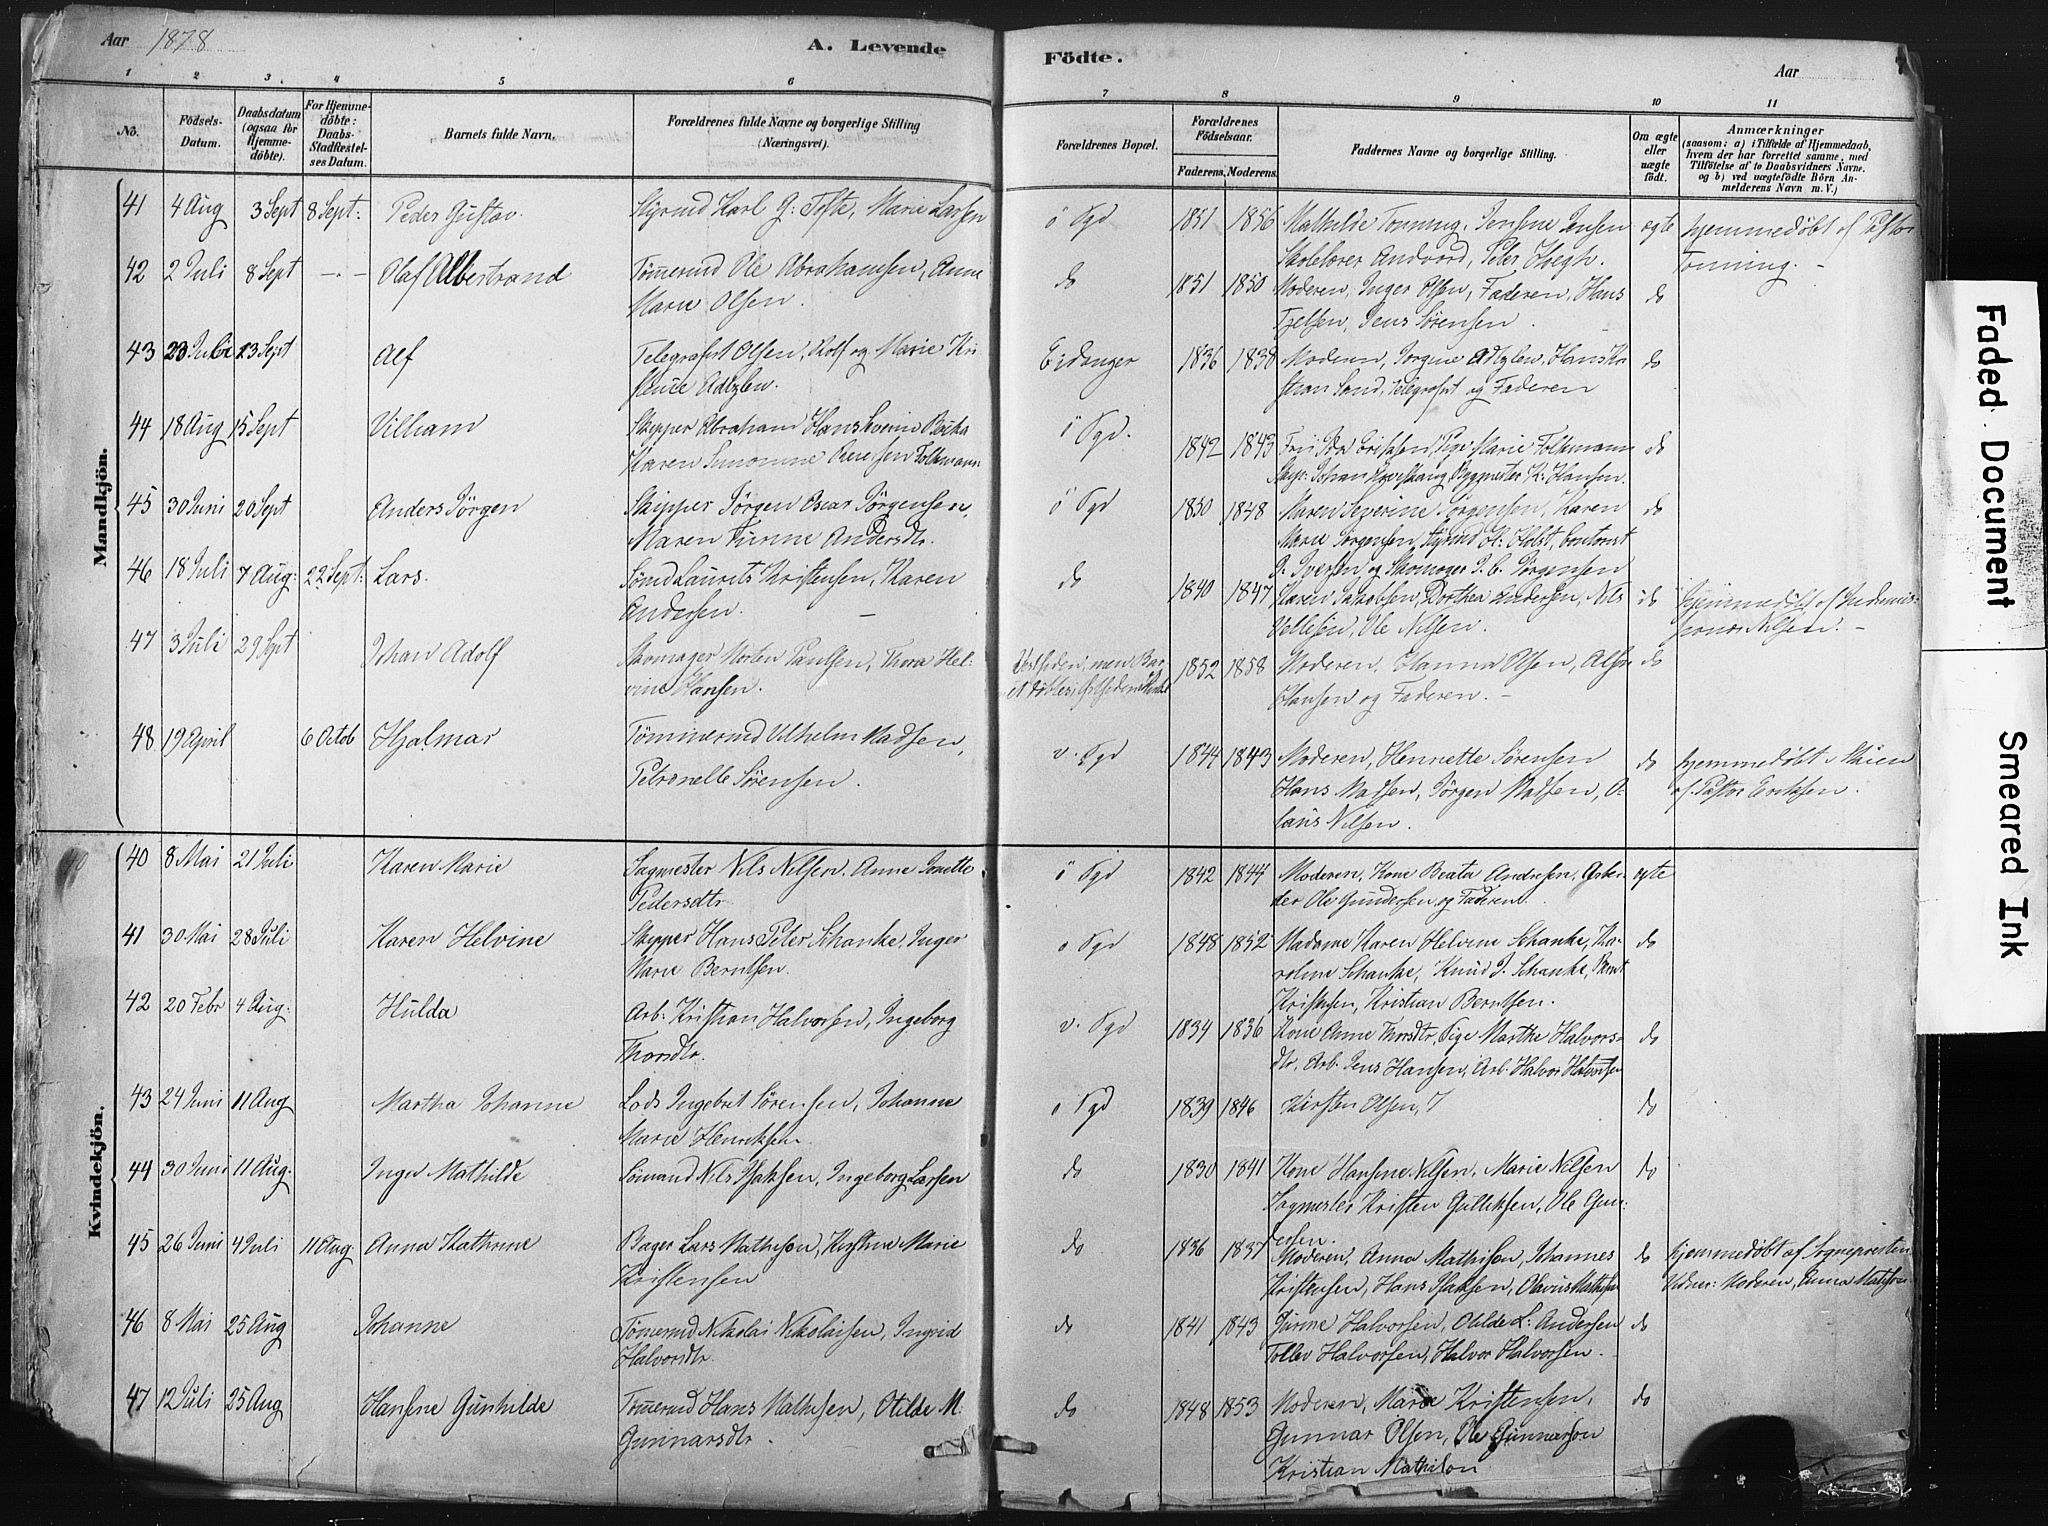 Aar 1878
A. Levende
Födte.
Aar
1 2 3. 4 5 6
7 8 9 10 11
No.
Födsels-
Datum.
Daabsdatum
(ogsaa for
Hjemme-
döbte).
For Hjemme-
döbte:
Daabs-
Stadfæstel-
ses Datum.
Barnets fulde Navn.
Forældrenes fulde Navne og borgerlige Stilling
(Næringsvei).
Forældrenes Bopæl.
Forældrenes
Födselsaar.
Faderens. Moderens.
Faddernes Navne og borgerlige Stilling.
Om ægte
eller
uægte
födt.
Anmærkninger
(saasom: a) i Tilfælde af Hjemmedaab,
hvem der har forrettet samme, med
Tilföielse af to Daabsvidners Navne.
og b) ved uægtefödte Börn An-
melderens Navn m. V.)
Mandkjön.
41 4 Aug 3 Sept 8 Sept: Peder Gustav Styrmd Karl G: Tofte, Marie Larsen
ö Sgd 1851 1856 Mathilde Tonning, Jensine Jensen ægte hjemmedøbt af Pastor
Skolelærer Andvord, Peter Hvegh. Tonning. -
42 2 Juli 8 Sept -"- Olaf Albertrand Tömermd Ole Abrahamsen, Anne
Marie Olsen.
do 1851 1850 Moderen, Inger Olsen, Faderen, Hans do
Tjelsen, Jens Sørensen.
43 23 Juli 13 Sept Alf Telegrafist Olsen, Rolf og Marie Kri-
stence Adtzlew.
Eidanger 1836 1838 Moderen, Jørgine Adtzlew, Hans Kri- do
stian Sand, Telegrafist og Faderen
44 18 Aug 15 Sept Vilham Skipper Abraham Hans
Karen Simonine Folkmann
ö Sgd. 1842 1843 Fru Eriksen, Pige Marie Folkmann do
Skip: Johan Byggmester K: Hansen.
45 30 Juni 20 Sept Anders Jörgen Skipper Jörgen Oscar Jörgensen,
Maren Andersdtr.
ö Sgd 1850 1848 Maren Severine Jörgensen, Karen do
Marie Jørgensen, Styrmd H: Holst,
J. Iversen og Skomager J. C. Jørgensen
46 18 Juli 7 Aug: 22 Sept: Lars. Sömd Laurits Kristensen, Karen
Andersen. -
do 1840 1847 Karen Jakobsen, Dorthea Andersen, Nils do hjemmedøbt af
Ole Nilsen. Nilsen. -
47 3 Juli 29 Sept Johan Adolf Skomager Morten Paulsen, Thora Hel-
vine Hansen.
Vestsiden, men Bar-
1852 1858 Moderen, Hanna Olsen, do
Hansen og Faderen. -
48 19 April 6 Octob Hjalmar Tömmermd Vilhelm Madsen,
Petronelle Sörensen.
v. Sgd 1844 1843 Moderen, Henriette Sörensen do hjemmedøbt i Skien
Hans Madsen, Jørgen Madsen, O- af Pastor Eriksen.
laus Nilsen.
Kvindekjön.
40 8 Mai 21 Juli Karen Marie Sagmester Nils Nilsen. Anne Jonette
Pedersdtr
ö Sgd 1842 1844 Moderen, Kone Beata Andresen, Arbei- ægte
der Ole Gundersen og Faderen.
41 30 Mai 28 Juli Karen Helvine Skipper Hans Peter Schanke, Inger
Marie Berntsen.
ö Sgd 1848 1852 Madame Karen Helvine Schanke, Ka- do
roline Schanke, Knud J. Schanke, Bernt
Kristensen, Kristian Berntsen.
42 20 Febr 4 Aug: Hulda Arb: Kristian Halvorsen, Ingeborg
Thorsdtr.
v. Sgd 1834 1836 Kone Anne Thorsdtr, Pige Marthe Halvors- do
dtr, Arb. Jens Hansen, Arb. Halvor Halvorsen
43 24 Juni 11 Aug Martha Johanne Lods Ingebret Sørensen, Johanne
Marie Henriksen
ö Sgd 1839 1846 Kirsten Olsen, do
44 30 Juni 11 Aug. Inger Mathilde Sömand Nils Isaksen, Ingeborg Larsen
do 1830 1841 Kone Hansine Nilsen, Marie Nilsen do
Sagmester Kristen Gulliksen, Ole Gun-
dersen.
45 26 Juni 4 Juli 11 Aug. Anna Kathrine Bager Lars Mathison, Kirstine Marie
Kristensen
do 1836 1837 Moderen, Anna Mathison, Johannes do hjemmedøbt af Sognepresten
Kristensen, Hans Isaksen, Olavus Mathisen Vidner: Moderen, Emma Mathison
46 8 Mai 25 Aug Johanne Tömermd Nikolai Nikolaisen, Ingrid
Halvorsdtr.
do 1841 1843 Gurine Halvorsen, Otilde L: Andersen do
Tollev Halvorsen, Halvor Halvorsen. -
47 12 Juli 25 Aug Hansine Gunhilde Tömermd Hans Mathisen, Otilde M.
Gunnarsdtr.
do 1848 1853 Moderen, Marie Kristensen, do
Gunnar Olsen, Ole Gunnarson
Kristian Mathison
Faded Document
Smeared Ink